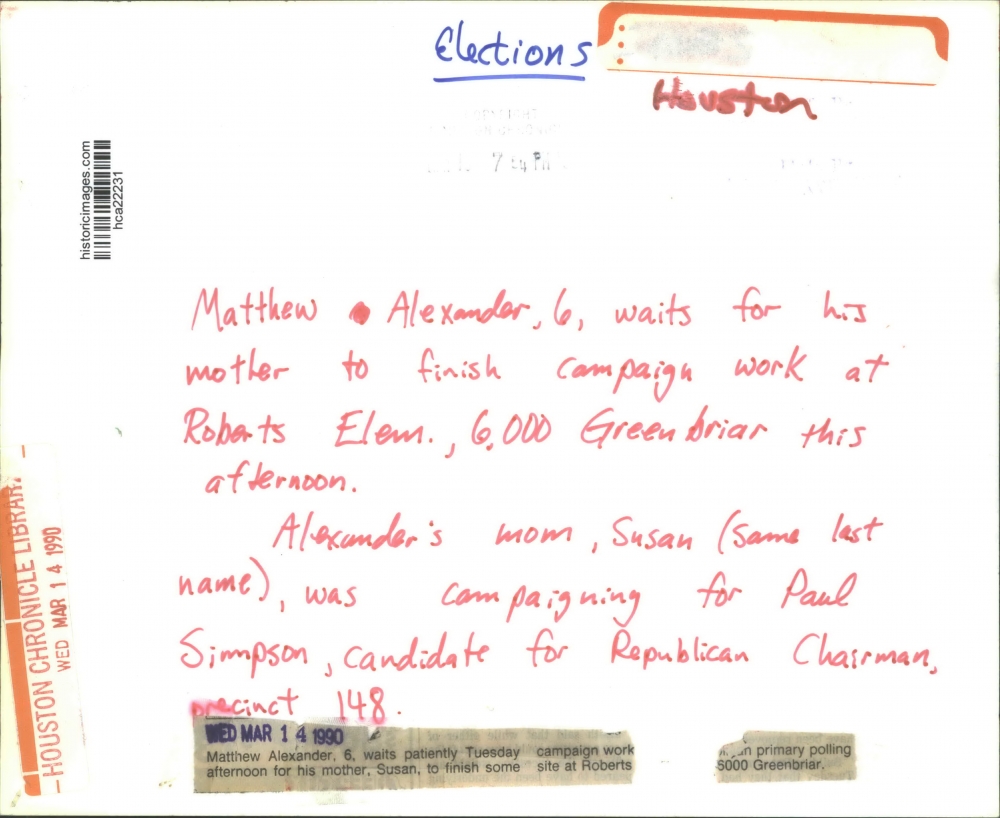 Elections
Houston
7 54 PM
historicimages.com
hca22231
Matthew Alexander, 6, waits for his
mother to finish campaign work at
Roberts Elem., 6,000 Greenbriar this
afternoon.
Alexander's mom, Susan (same last
name), was campaigning for Paul
Simpson, candidate for Republican Chairman,
precinct 148.
HOUSTON CHRONICLE LIBRARY
WED MAR 14 1990
WED MAR 14 1990
Matthew Alexander, 6, waits patiently Tuesday campaign work primary polling
afternoon for his mother, Susan, to finish some site at Roberts 6000 Greenbriar.